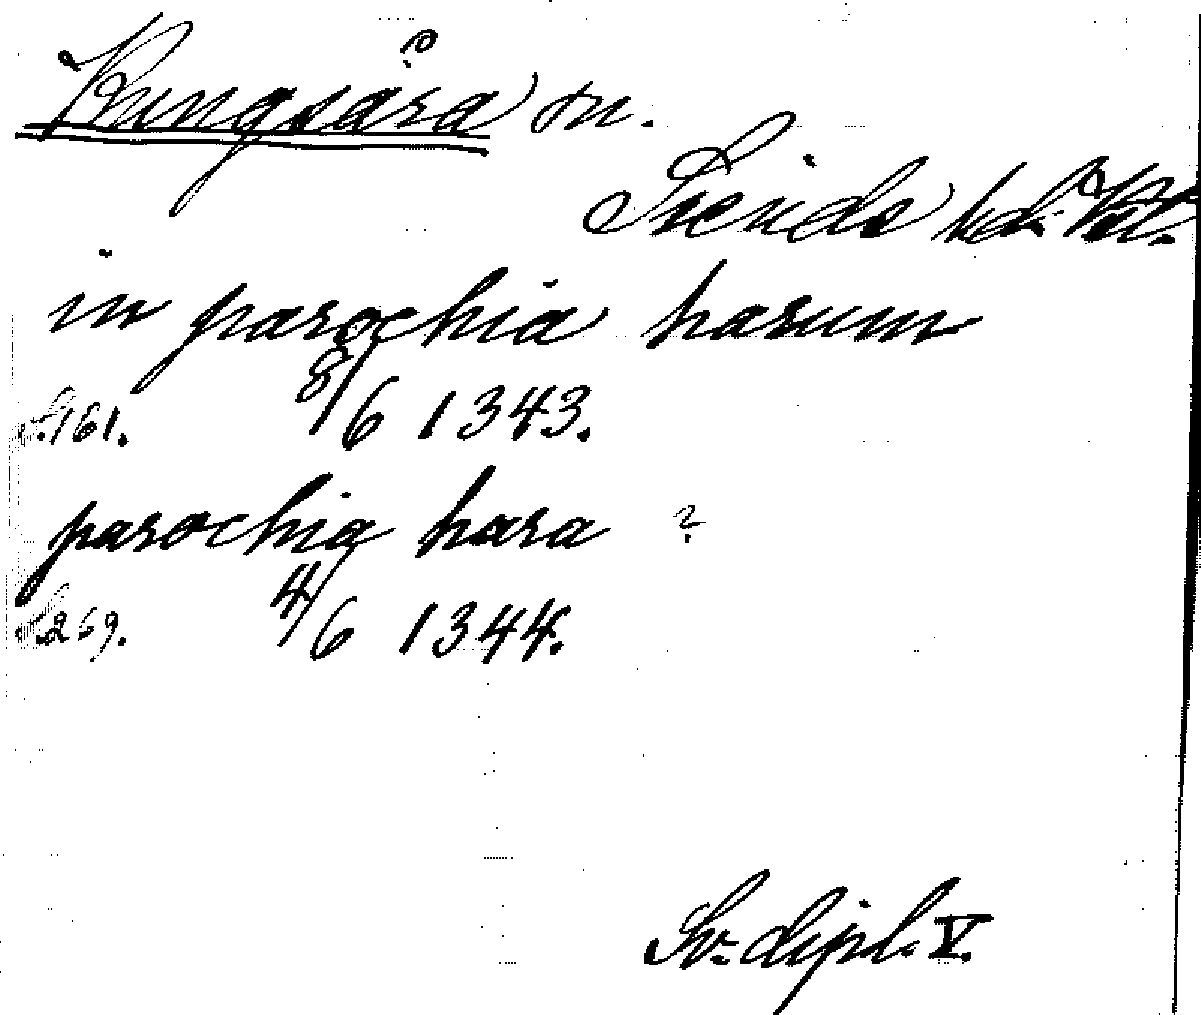 ?
Kungsåra sn.
Siends hd.
in parochia harum
s.161. 8/6 1343.
parochia hara ?
s.269. 4/6 1344.
Sv. dipl. V.